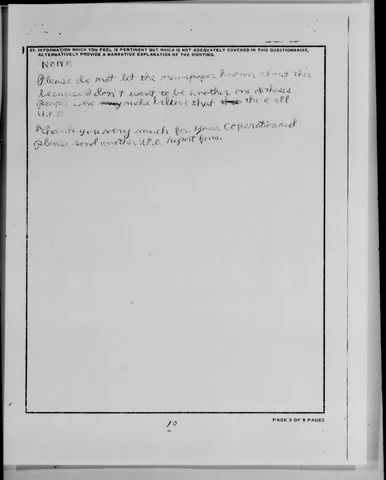 37. INFORMATION WHICH YOU FEEL IS PERTINENT BUT WHICH IS NOT ADEQUATELY COVERED IN THIS QUESTIONNAIRE,
ALTERNATIVELY PROVIDE A NARRATIVE EXPLANATION OF THE SIGHTING.
NONE
Please do not let the newspaper known about this
because I don't want to be another one of those
people who make believe that the all
U.F.O
Thank you very much for your Coperation and
please send another U.F.O. report form.
10
PAGE 9 OF 9 PAGES